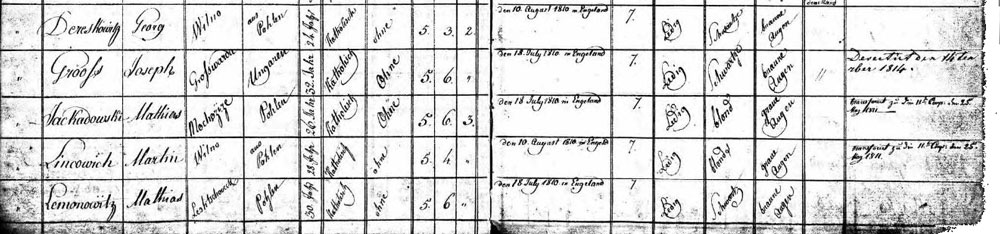 " Dereskowitz Georg Wilno aus Pohlen 24 Jahr Katholisch ohne 5. 3. 2. den 10. August 1810 in Engeland 7. Ledig Schwartze braune Augen
" Grooss Joseph Ungaren 32 Jahr Katholisch Ohne 5. 6. " den 18. July 1810 in Engeland 7. Ledig Schwartze braune Augen " Desertirt den
1814.
" Mathias aus Pohlen 26 Jahr Katholisch Ohne 5. 6. 3. den 18 July 1810 in Engeland 7. Ledig blond graue Augen transferirt zu die 11te Comp. den 25
1811
" Lincowich Martin Wilno aus Pohlen Jahr Katholisch ohne 5. 4. " den 10. August 1810 in Engeland 7. Ledig blond graue Augen transferirt zu die 11te Comp. den 25
1811.
" Lemonowitz Mathias Pohlen 30 Jahr Katholisch ohne 5. 6. " den 18 July 1810 in Engeland 7. Ledig Schwartz braune Augen